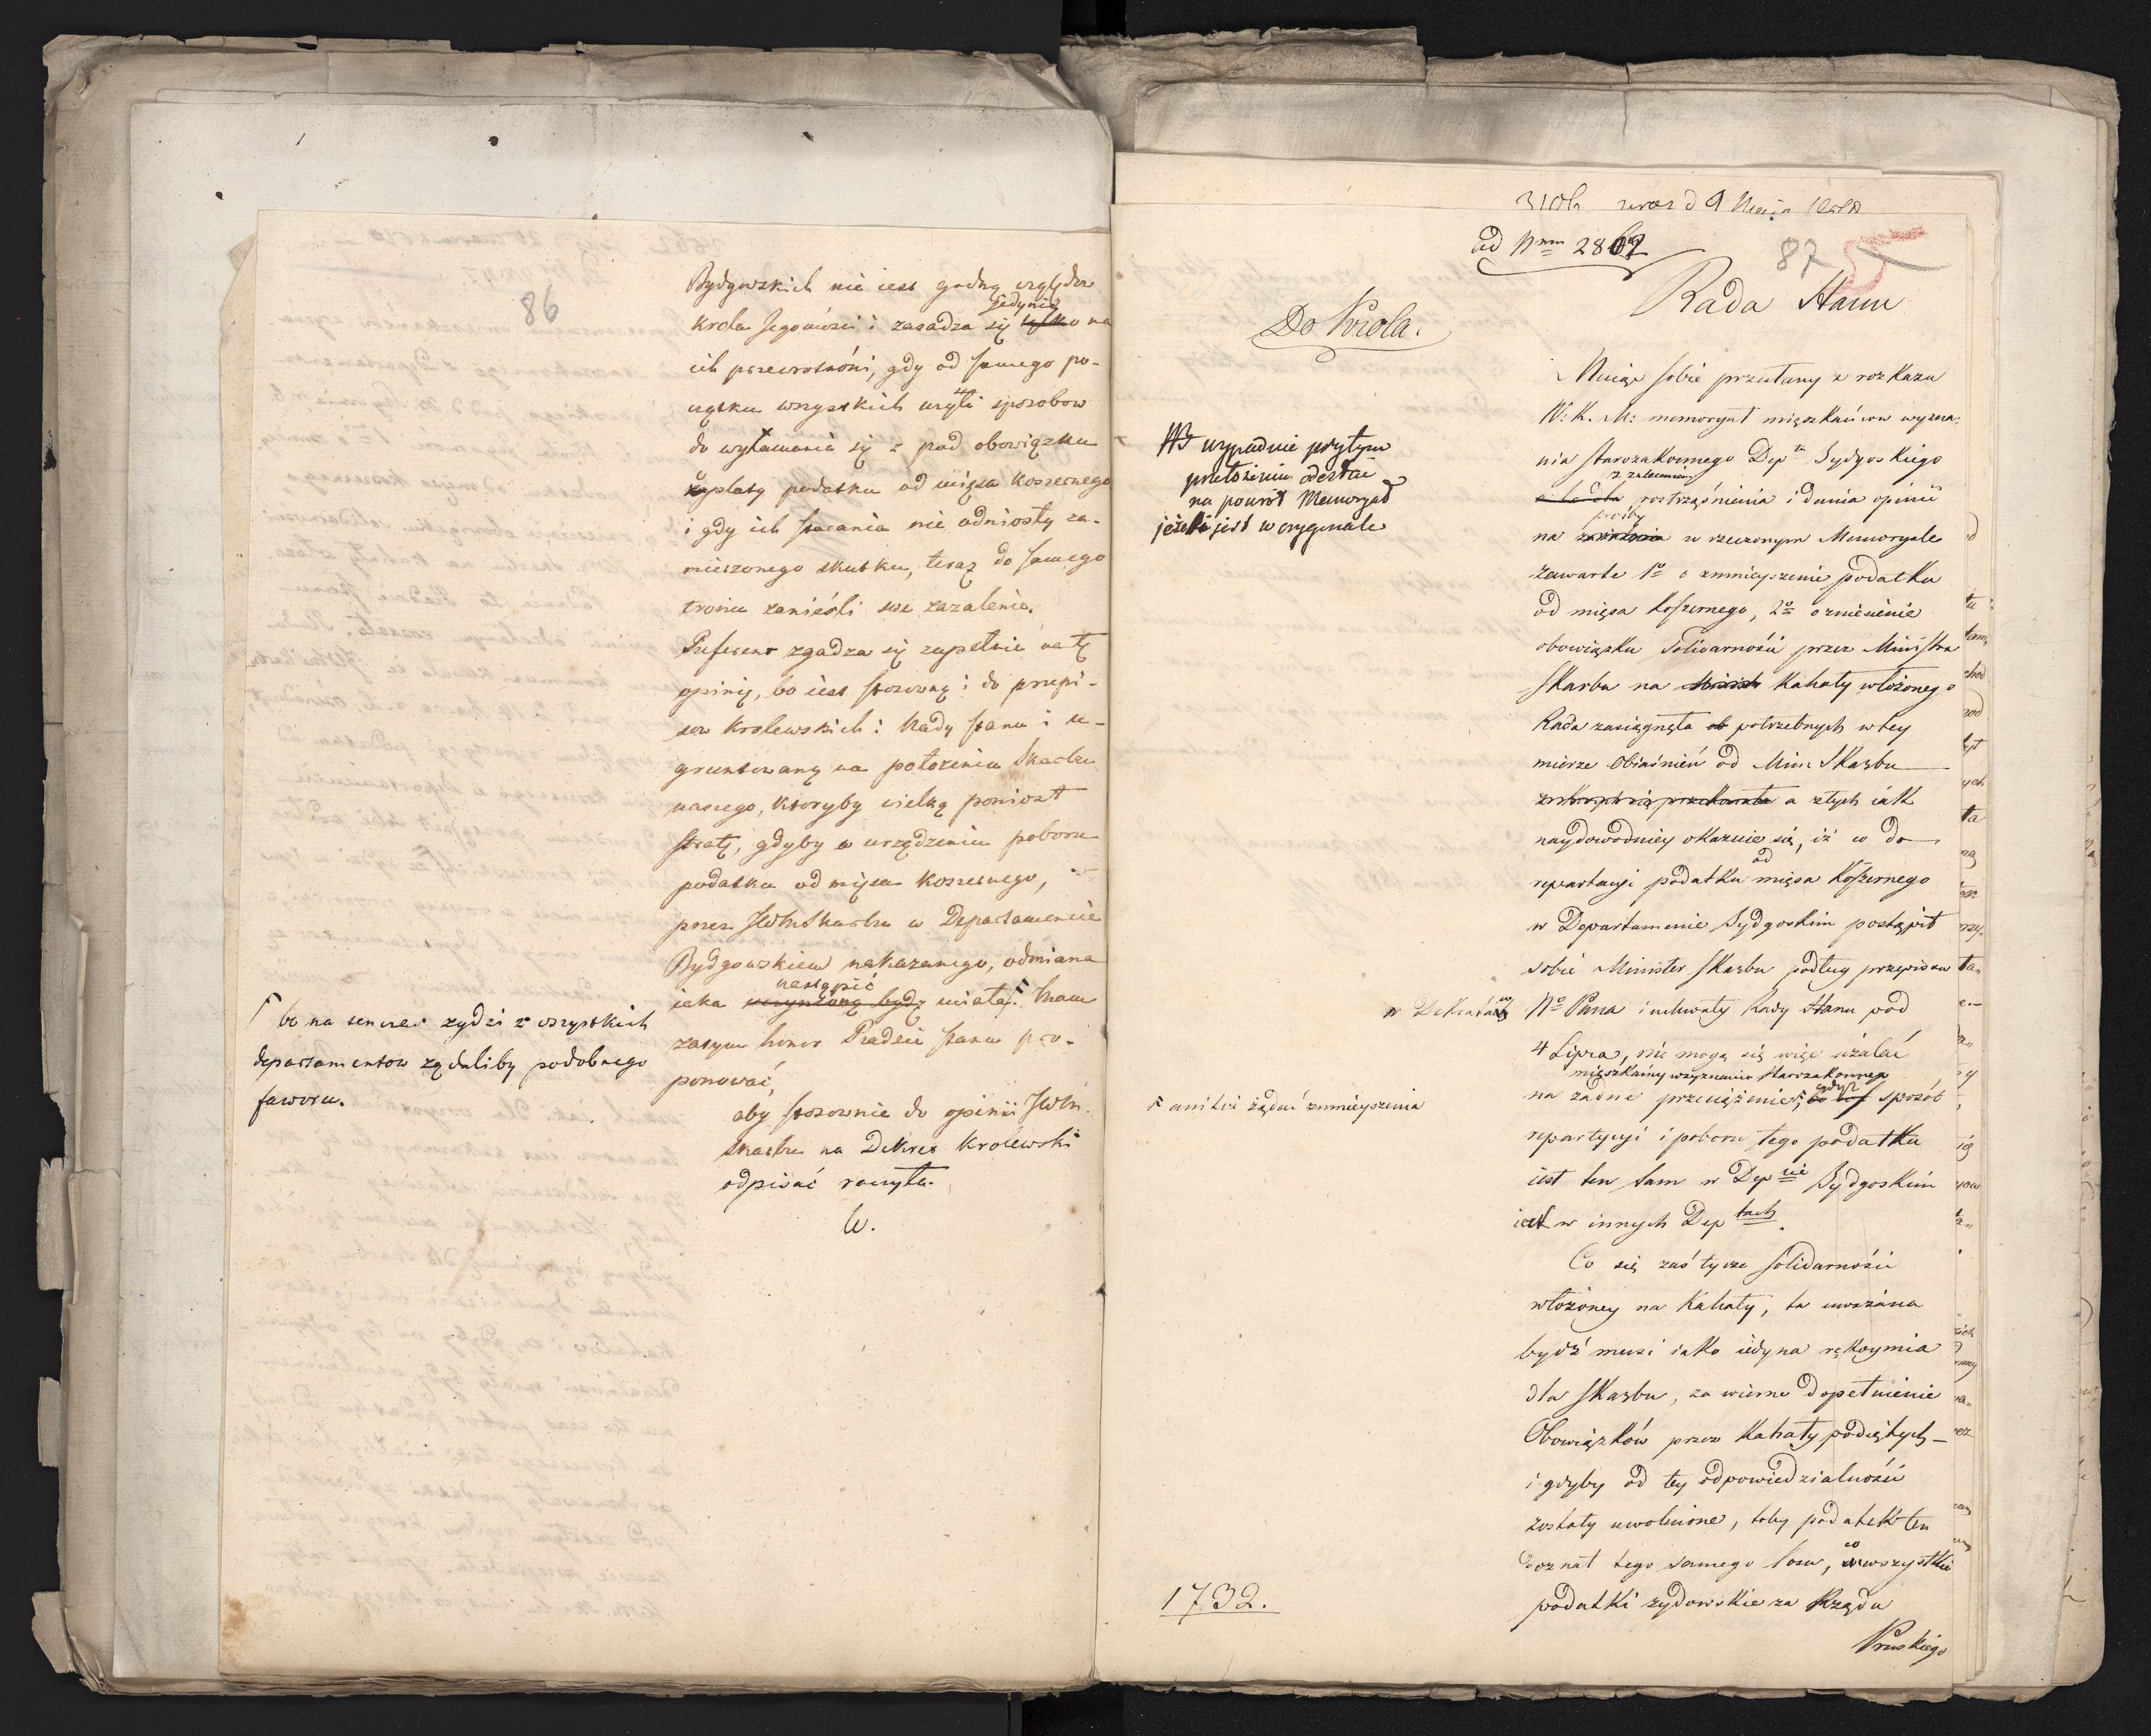 86
Bydgowskich nie iest godną względow
Krola Jegomości i zasadza się jedynie tylko na
ich przewrotności, gdy od samego po-
czątku wszystkich użyli sposobow
do wyłamania się z pod obowiązku
opłaty podatku od mięsa koszernego
i gdy ich starania nie odniosły za-
mierzonego skutku, teraz do samego
tronu zanieśli swe zażalenie.
Referent zgadza się zupełnie na tę
opinię, bo iest stosowną i do przepi-
sow Krolewskich i Rady stanu i u-
gruntowaną na położeniu Skarbu
naszego, ktoryby wielką poniosł
stratę, gdyby w urządzeniu poboru
podatku od mięsa koszernego,
przez JWMSkarbu w Departamencie
Bydgowskiem nakazanego, odmiana
iaka nastąpić uczynioną bydź miała. Mam
zatym honor Radzie stanu pro-
ponować,
aby stosownie do opinii JWM.
Skarbu na Dekret Krolewski
odpisać raczyła.
W.
bo na tenczas żydzi z wszystkich
departamentow żądaliby podobnego
faworu.
9 Maja
ad Nrum 2869
87
Rada Stanu
Do Krola.
NB wypadnie przytym
przełożeniu odesłać
na powrót Memoryał
jeżeli jest w oryginale
Maiąc sobie przesłany z rozkazu
W: K. M: memoryał mięszkańcow wyzna-
nia starozakonnego Dep tu Bydgoskiego
z zaleceniem roztrząśnienia i dania opinii
na prośby zażalenia w rzeczonym Memoryale
zawarte 1o o zmnieyszenie podatku
od mięsa koszernego, 2o o zniesienie
obowiązku Solidarności przez Ministra
Skarbu na Kahały włożonego
Rada zasiągnęła potrzebnych w tey
mierze obiaśnień od Min: Skarbu
a z tych iak
naydowodniey okazuie się, iż w do
repartacyi podatku od mięsa Koszernego
w Departamencie Bydgoskim postąpił
sobie Minister Skarbu podług przepisow
w Dekretach No Pana i uchwały Rady Stanu pod
4 Lipca, nie mogą się więc użalać
mięszkańcy wyznania starozakonnego
na żadne przeciążenie, gdyż sposób
ani też żądać zmnieyszenia
repartycyi i poboru tego podatku
iest ten sam w Dep cie Bydgoskim
iak w innych Dep tach.
Co się zaś tycze solidarności
włożoney na Kahały, ta uważana
bydź musi iako iedyna rękoymia
dla Skarbu, za wierne dopełnienie
Obowiązków przez Kahały podiętych
i gdyby od tey odpowiedzialności
zostały uwolnione, toby podatek ten
doznał tego samego losu, co wszystkie
podatki żydowskie za Rządu
Pruskiego
1732.